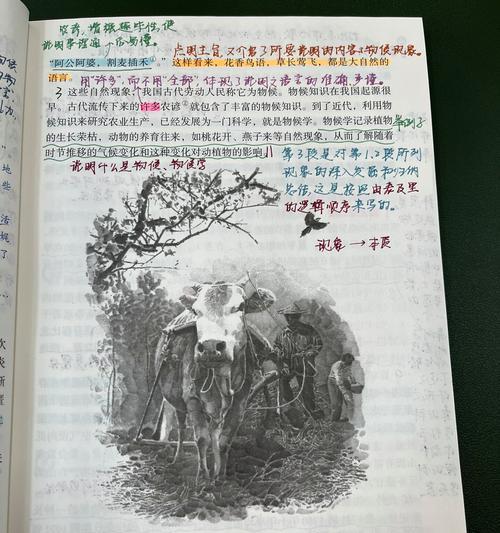 点明主旨,又介绍了所要说明的内容:物候现象。
“阿公阿婆,割麦插禾”。这样看来,花香鸟语,草长莺飞,都是大自然的
语言。
用“许多”,而不用“全部”,体现了说明文语言的准确、严谨。
3 这些自然现象,我国古代劳动人民称它为物候。物候知识在我国起源很
早。古代流传下来的许多农谚就包含了丰富的物候知识。到了近代,利用物
候知识来研究农业生产,已经发展为一门科学,就是物候学。物候学记录植物
的生长荣枯,动物的养育往来,如桃花开、燕子来等自然现象,从而了解随着
时节推移的气候变化和这种变化对动植物的影响。
说明什么是物候、物候学
第3段是对第1、2段所列
现象的深入发展和归纳
总结,这是按照由表及里
的逻辑顺序来写的。
现象→本质